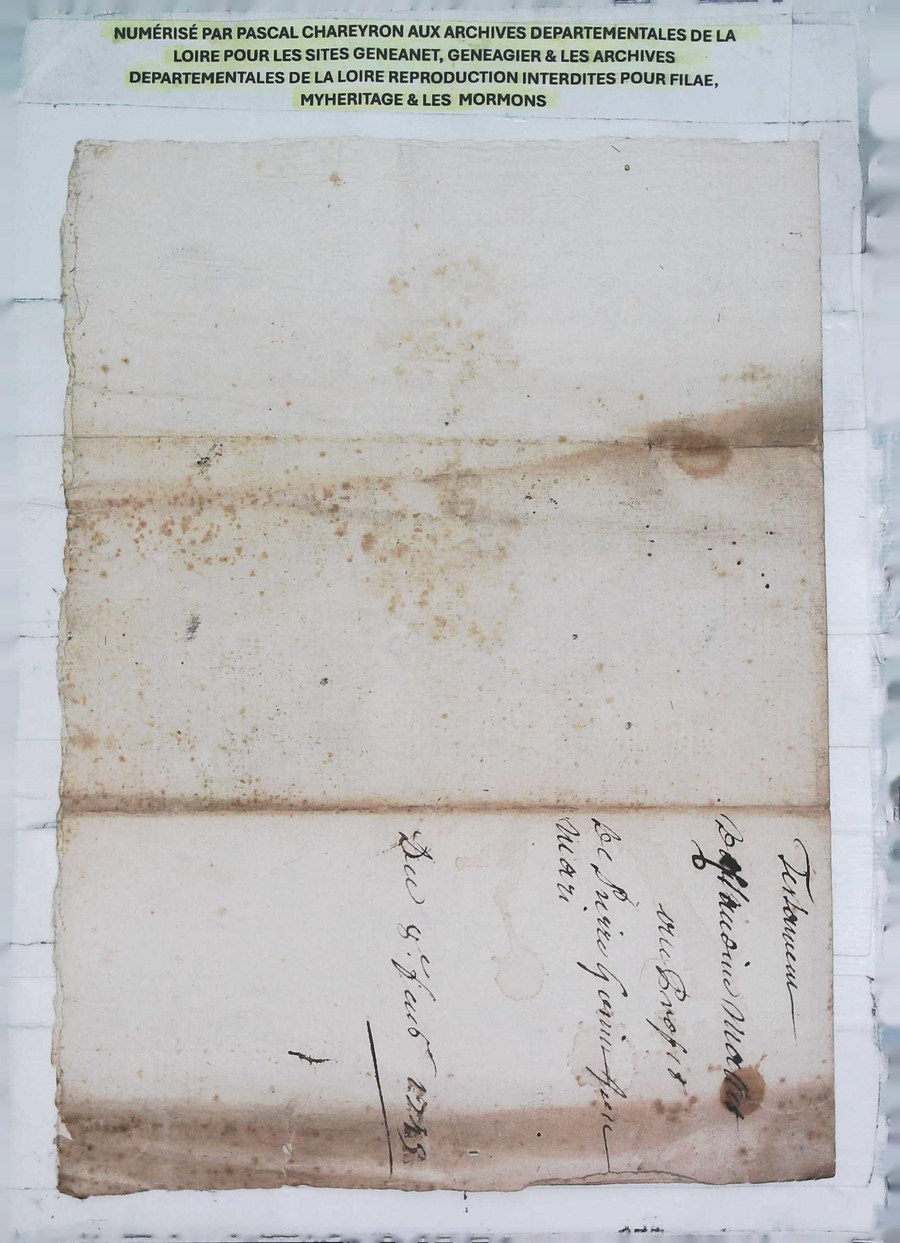 NUMÉRISÉ PAR PASCAL CHAREYRON AUX ARCHIVES DEPARTEMENTALES DE LA
LOIRE POUR LES SITES GENEANET, GENEAGIER & LES ARCHIVES
DEPARTEMENTALES DE LA LOIRE REPRODUCTION INTERDITES POUR FILAE,
MYHERITAGE & LES MORMONS
Testament
au Profit
De Pierre
mari
Du 8e